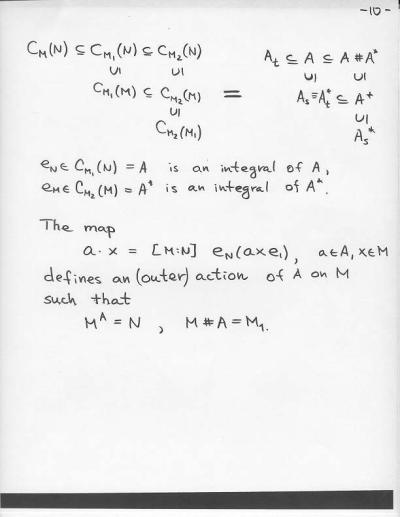 -10-
C_M(N) ⊆ C_{M_1}(N) ⊆ C_{M_2}(N)     A_t ⊆ A ⊆ A # A*
∪|     ∪|     ∪|     ∪|
C_{M_1}(M) ⊆ C_{M_2}(M)     =     A_s ≡ A*_t ⊆ A*
∪|     ∪|
C_{M_2}(M_1)     A_s*
e_N ∈ C_{M_1}(N) = A is an integral of A,
e_M ∈ C_{M_2}(M) = A* is an integral of A*.
The map
a · x = [M:N] e_N(axe_1), a∈A, x∈M
defines an (outer) action of A on M
such that
M^A = N , M # A = M_1.